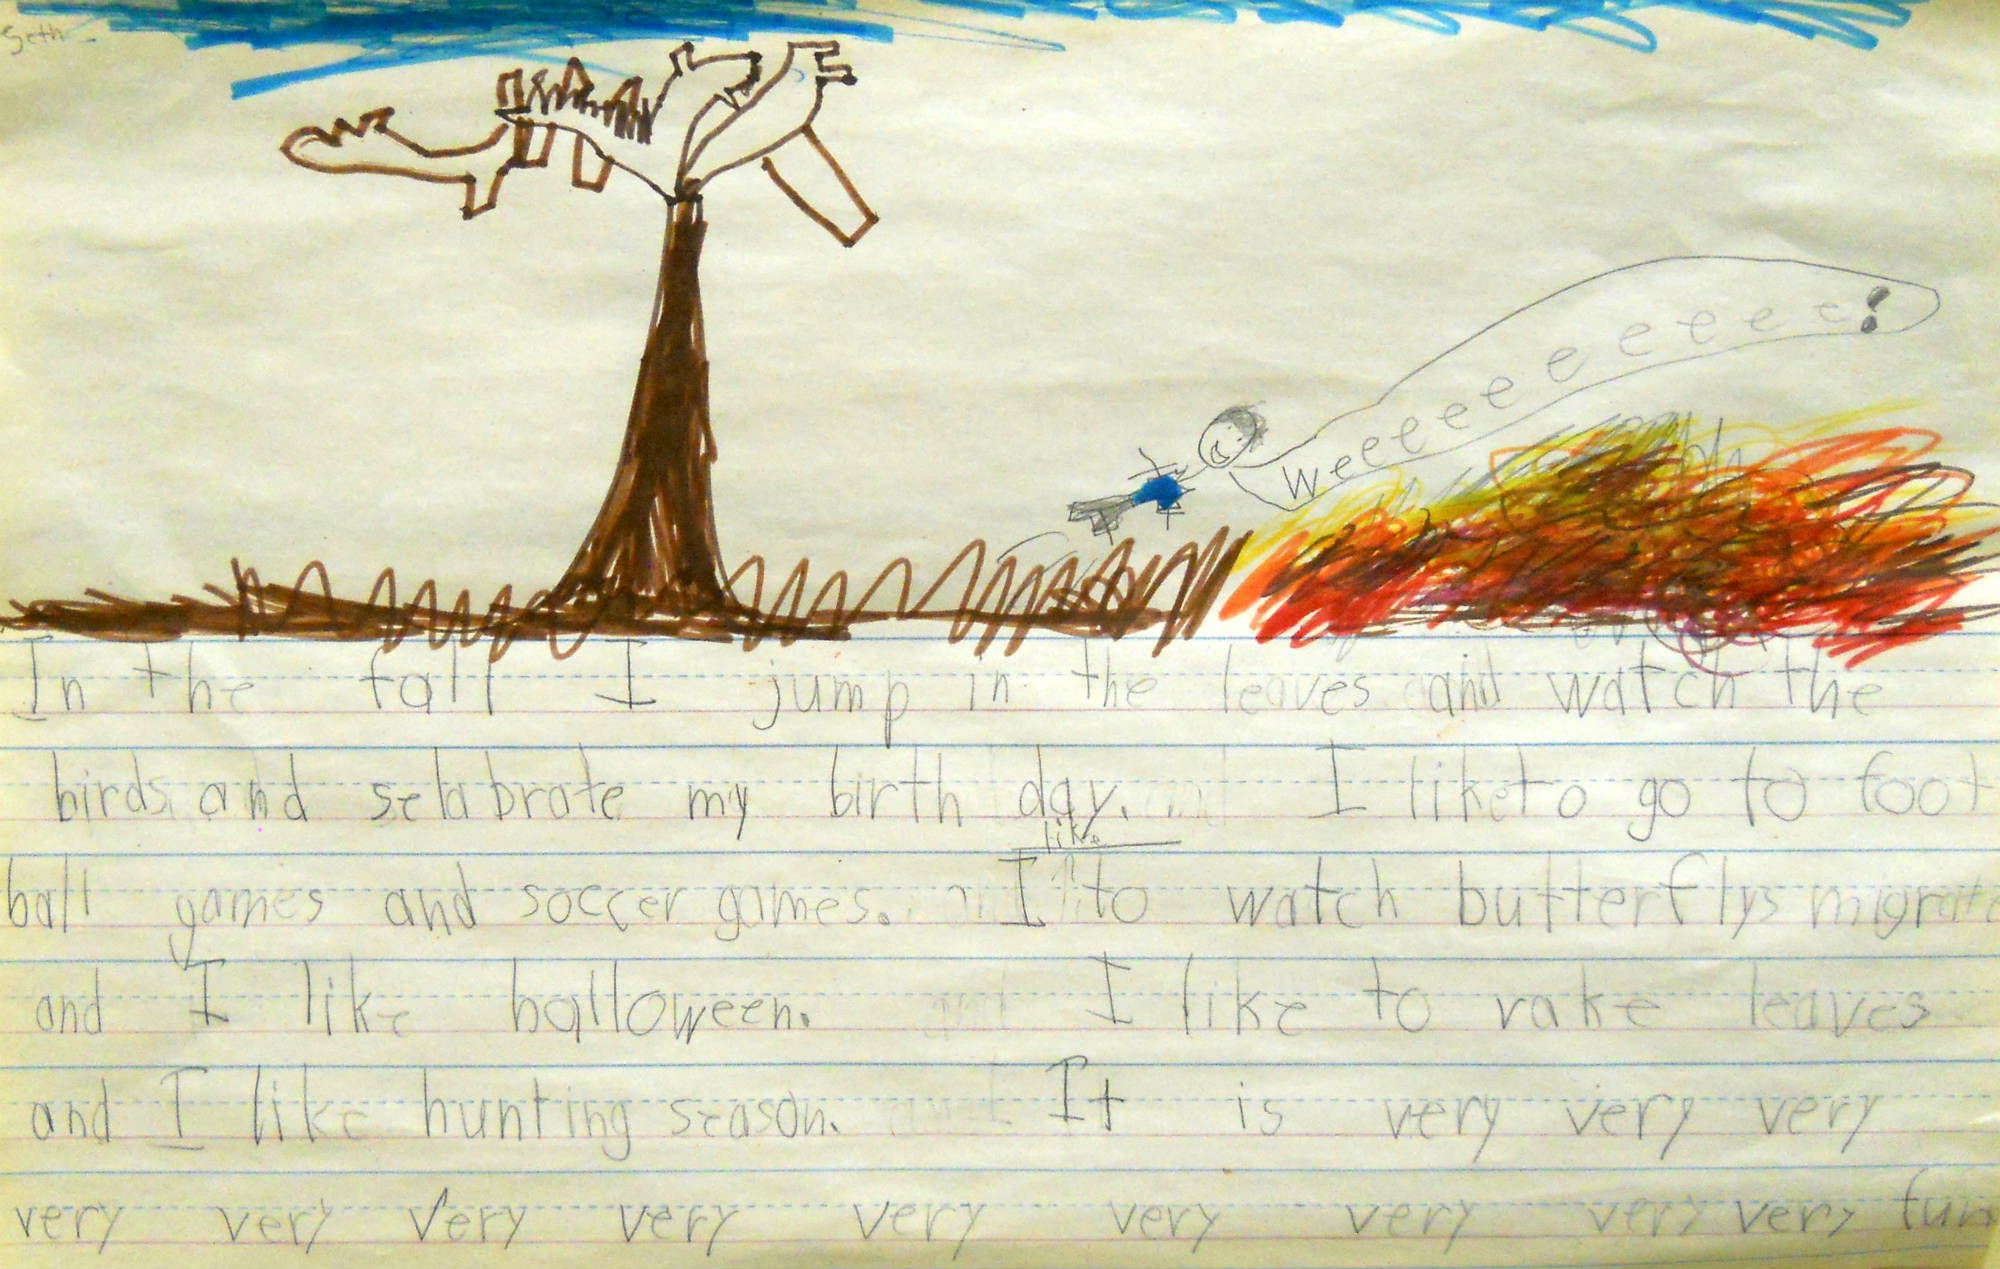 Seth
Weeeeeeeeeeee!
In the fall I jump in the leaves and watch the
birds and selabrate my birth day. I like to go to foot
ball games and soccer games. I like to watch butterflys migrate
and I like halloween. I like to rake leaves
and I like hunting season. It is very very very
very very very very very very very very very fun